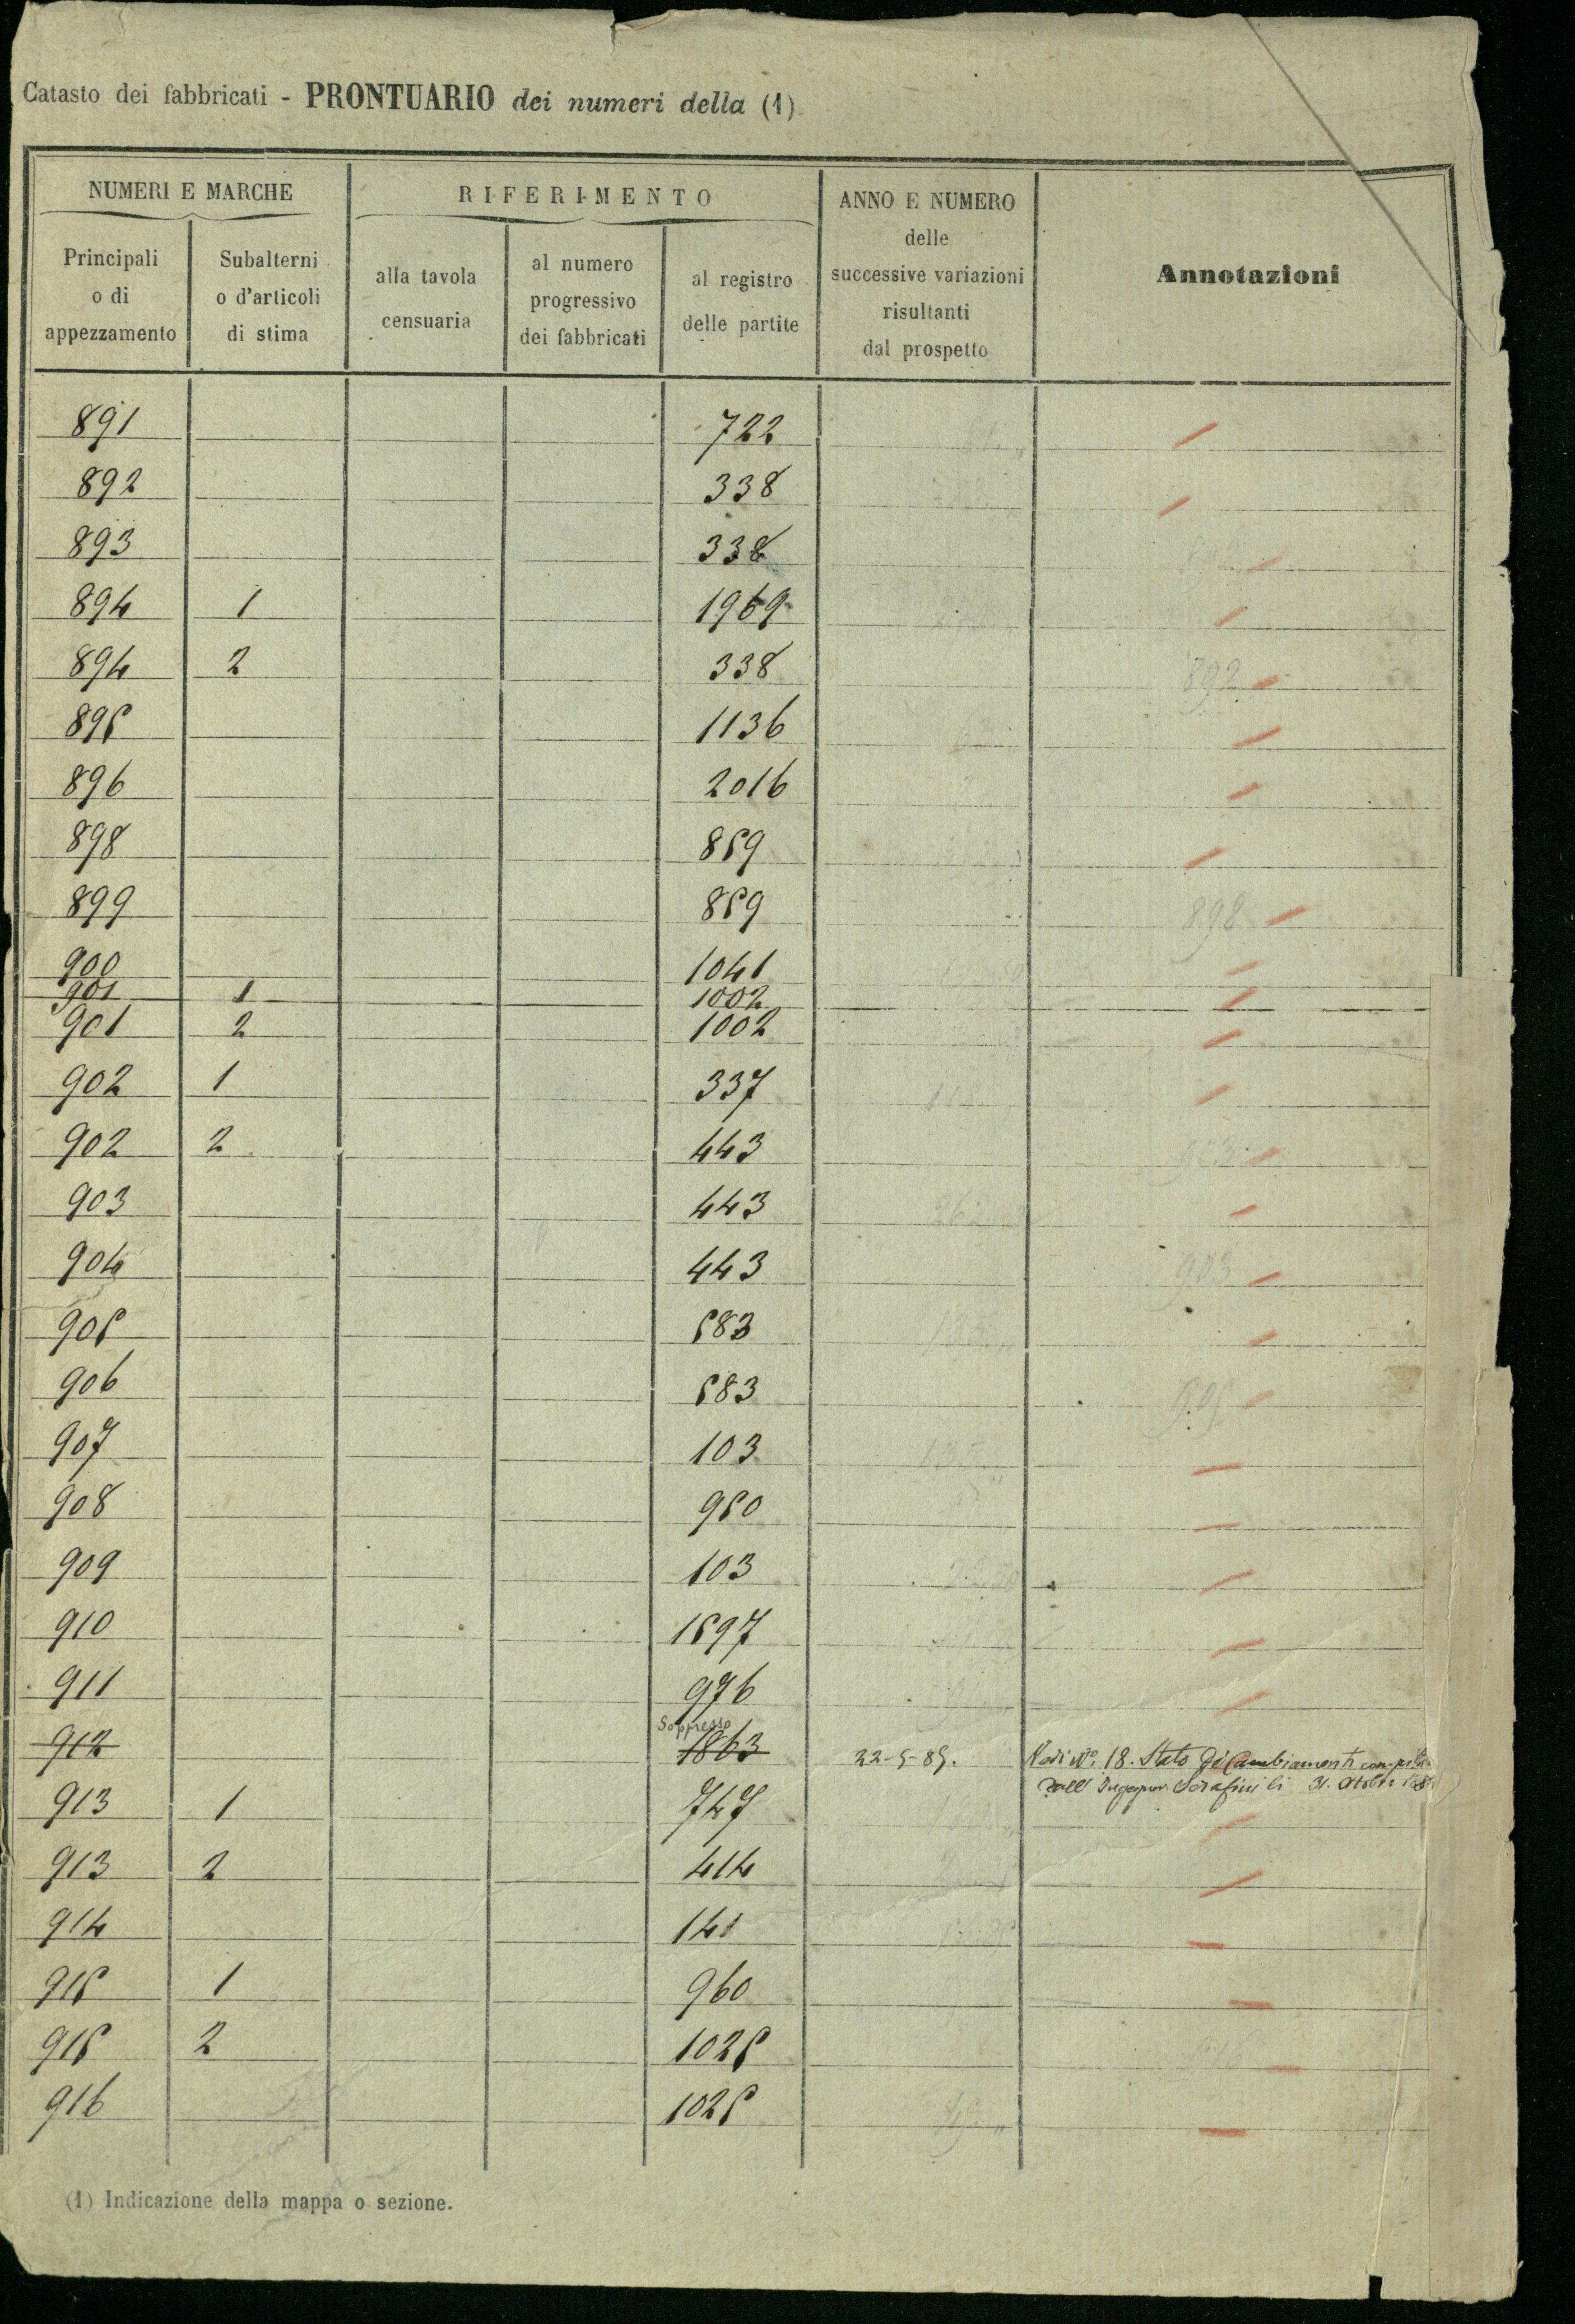 Catasto dei fabbricati - PRONTUARIO dei numeri della (1)
NUMERI E MARCHE
RIFERIMENTO
ANNO E NUMERO
delle
successive variazioni
risultanti
dal prospetto
Annotazioni
Principali
o di
appezzamento
Subalterni
o d'articoli
di stima
alla tavola
censuaria
al numero
progressivo
dei fabbricati
al registro
delle partite
891 722
892 338
893 338
894 1 1969
894 2 338
895 1136
896 2016
898 859
899 859
900 1041
901 1 1002
901 2 1002
902 1 337
902 2 443
903 443
904 443
905 583
906 583
907 103
908 950
909 103
910 1597
911 976
Soppresso
912 1863 22-5-85. Vedi N.º 18. Stato dei Cambiamenti
dall' Serafini li 31.
913 1 747
913 2 414
914 141
915 1 960
915 2 1025
916 1025
(1) Indicazione della mappa o sezione.